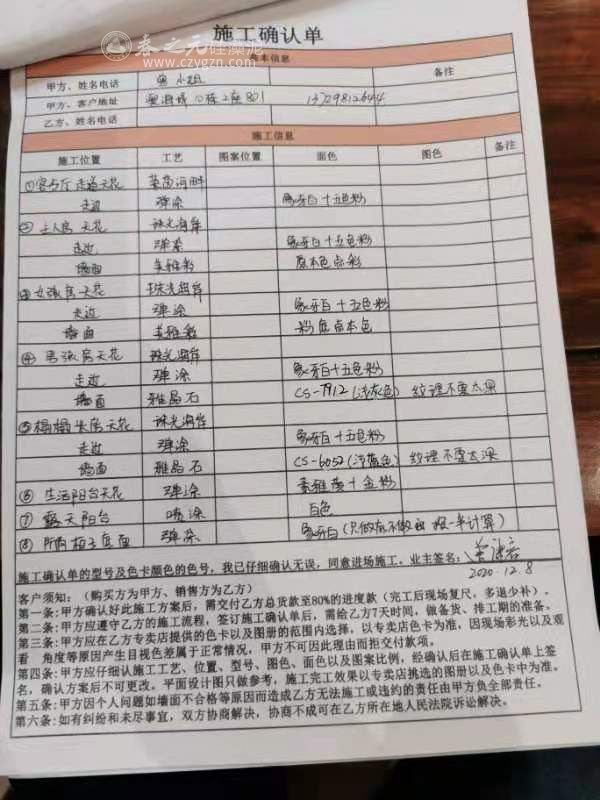 春之元硅藻泥
www.czygzn.com
施工确认单
基本信息
甲方、姓名电话 小姐 备注
甲方、客户地址 10栋2座801
乙方、姓名电话
施工信息
施工位置 工艺 图案位置 面色 图色 备注
①客厅 走道天花
走边 弹涂 象牙白+五色粉
② 主人房 天花 珠光海岸
走边 弹涂 象牙白+五色粉
墙面 美雅彩 原本色点彩
③ 女孩房天花 珠光海岸
走边 弹涂 象牙白+五色粉
墙面 美雅彩 粉底点本色
④ 男孩房天花 珠光海岸
走边 弹涂 象牙白+五色粉
墙面 雅晶石 CS-7912(浅灰色) 纹理不要太深
⑤榻榻米房天花 珠光海岸
走边 弹涂 象牙白+五色粉
墙面 雅晶石 CS-6052(浅蓝色) 纹理不要太深
⑥ 生活阳台天花 弹涂 +金粉
⑦ 露天阳台 喷涂 白色
⑧ 所有柜子 弹涂 象牙白(只做底不做面 按一半计算)
施工确认单的型号及色卡颜色的色号，我已仔细确认无误，同意进场施工。业主签名：
2020.12.8
客户须知：（购买方为甲方、销售方为乙方）
第一条:甲方确认好此施工方案后，需交付乙方总货款至80%的进度款（完工后现场复尺，多退少补）。
第二条:甲方应遵守乙方的施工流程，签订施工确认单后，需给乙方7天时间，做备货、排工期的准备。
第三条:甲方应在乙方专卖店提供的色卡以及图册的范围内选择，以专卖店色卡为准，因现场彩光以及观
看 角度等原因产生目视色差属于正常情况，甲方不可因此理由而拒交付款项。
第四条:甲方应仔细认施工工艺、位置、型号、图色、面色以及图案比例，经确认后在施工确认单上签
名，确认方案后不可更改。平面设计图只做参考，施工完工效果以专卖店挑选的图册以及色卡中为准。
第五条:甲方因个人问题如墙面不合格等原因而造成乙方无法施工或违约的责任由甲方负全部责任。
第六条:如有纠纷和未尽事宜，双方协商解决，协商不成可在乙方所在地人民法院诉讼解决。